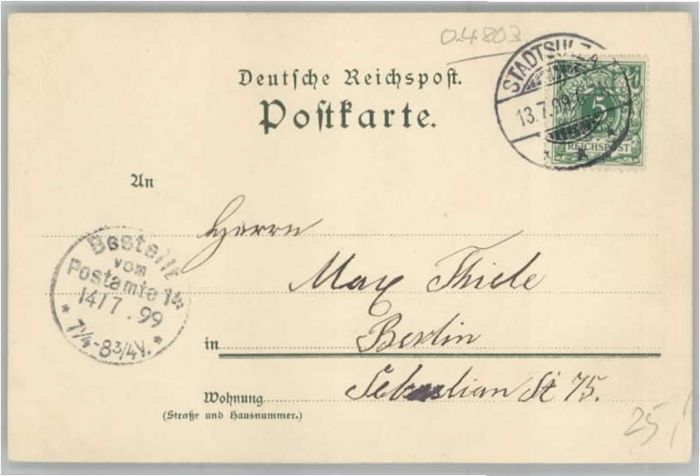 0.4803
STADTSULZA
13.7.99
5
REICHSPOST
Deutsche Reichspost.
Postkarte.
An
Herrn
Max Thiele
in Berlin
Wohnung Sebastian St 75.
(Straße und Hausnummer.)
Bestellt
vom
Postamte 14
14/7.99
7 1/4-8 3/4 V.
25,-